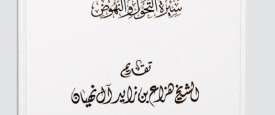 سيرة التحول والنهوض
تقديم
الشيخ هزاع بن زايد آل نهيان